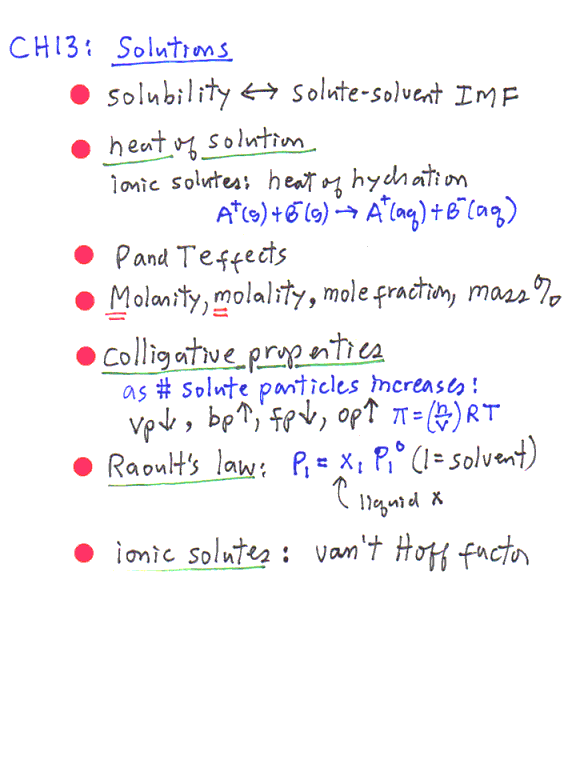 CH13: Solutions
● solubility ↔ solute-solvent IMF
● heat of solution
ionic solutes: heat of hydration
A⁺(g) + B⁻(g) → A⁺(aq) + B⁻(aq)
● P and T effects
● Molarity, molality, mole fraction, mass %
● colligative properties
as # solute particles increases:
vp↓, bp↑, fp↓, op↑ π = (n/V) RT
● Raoult's law: P₁ = X₁ P₁⁰ (1 = solvent)
↑ liquid X
● ionic solutes: van't Hoff factor